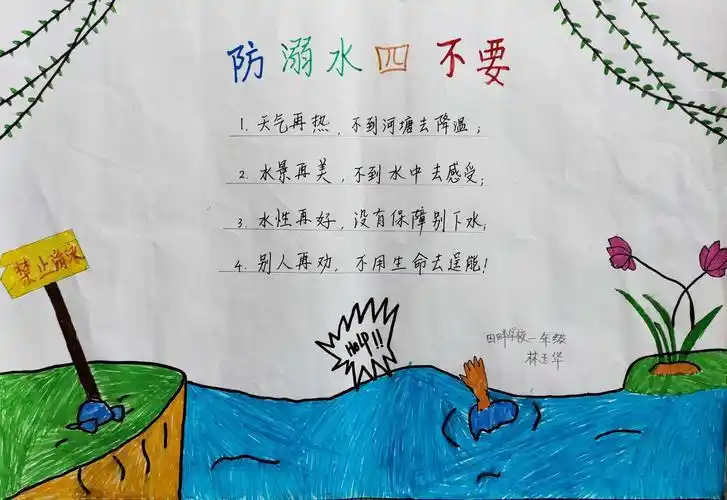 防溺水四不要
1. 天气再热，不到河塘去降温；
2. 水景再美，不到水中去感受；
3. 水性再好，没有保障别下水；
4. 别人再劝，不用生命去逞能！
禁止游泳
Help!!
田畔学校一年级
林玉华